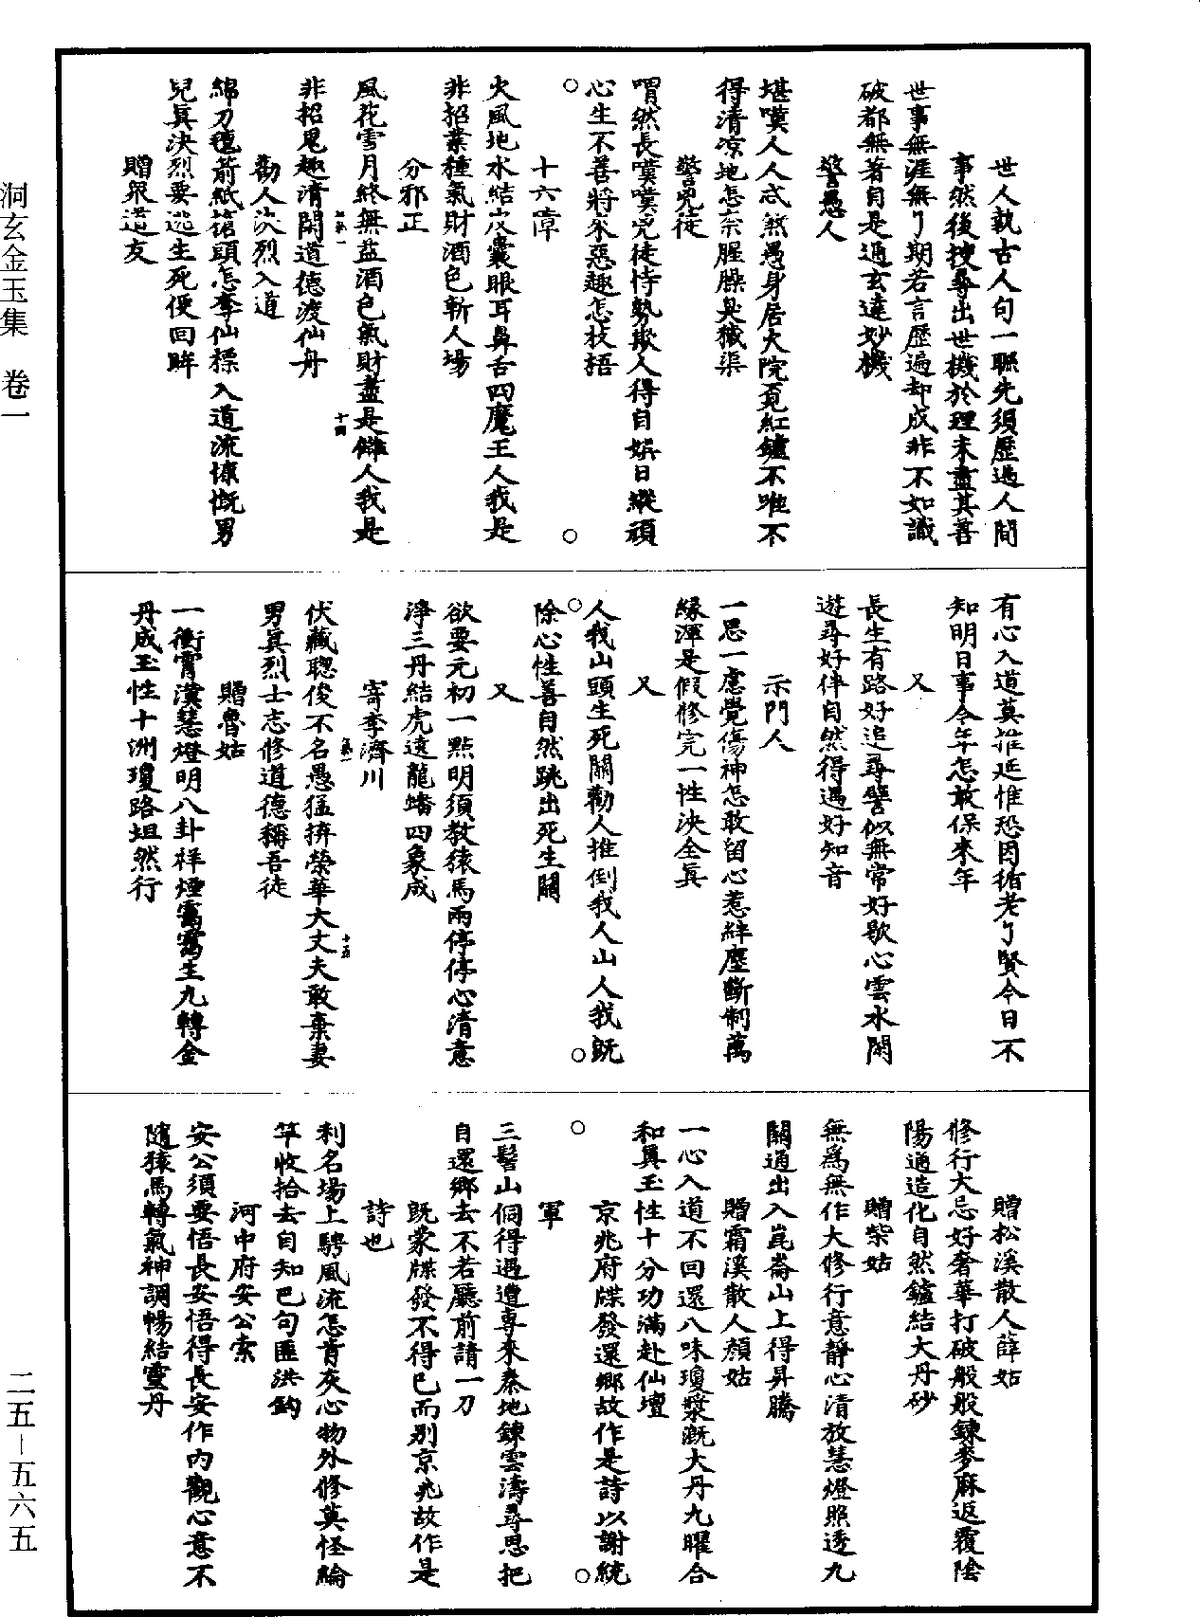 世人執古人句一聯先須歷過人間
事然後搜尋出世機於理未盡其善
世事無涯無了期若言歷遍却成非不如識
破都無著自是通玄達妙機
警愚人
堪嘆人人忒煞愚身居大院覓紅鑪不唯不
得清涼地怎奈腥臊臭穢渠
警兇徒
喟然長嘆嘆兇徒恃勢欺人得自娛日縱頑
心生不善將來惡趣怎枝捂
十六障
火風地水結穴囊眼耳鼻舌四魔王人我是
非招業種氣財酒色斬人場
分邪正
風花雪月終無益酒色氣財盡是讎人我是
非招鬼趣清閑道德渡仙舟
十四
勸人決烈入道
綿刀氊箭紙槍頭怎奪仙標入道流慷慨男
兒真決烈要逃生死便回眸
贈衆道友
有心入道莫推延惟恐因循老了賢今日不
知明日事今年怎敢保來年
又
長生有路好追尋譬似無常好歇心雲水閑
遊尋好伴自然得遇好知音
示門人
一思一慮覺傷神怎敢留心惹絆塵斷制萬
緣渾是假修完一性決全真
又
人我山頭生死關勸人推倒我人山人我既
除心性善自然跳出死生關
又
欲要元初一點明須教猿馬兩停停心清意
淨三丹結虎遶龍蟠四象成
寄李濟川
伏藏聰俊不名愚猛捹榮華大丈夫敢棄妻
男真烈士志修道德稱吾徒
十五
贈魯姑
一衝霄漢慧燈明八卦祥煙靄靄生九轉金
丹成玉性十洲瓊路坦然行
贈松溪散人薛姑
修行大忌好奢華打破般般鍊麥麻返覆陰
陽通造化自然鑪結大丹砂
贈柴姑
無為無作大修行意靜心清放慧燈照透九
關通出入崑崙山上得昇騰
贈霜溪散人顏姑
一心入道不回還八味瓊漿溉大丹九曜合
和真玉性十分功滿赴仙壇
京兆府牒發還鄉故作是詩以謝統
軍
三髻山侗得遇遭專來秦地鍊雲濤尋思把
自還鄉去不若廳前請一刀
既蒙牒發不得已而別京兆故作是
詩也
利名場上騁風流怎肯灰心物外修莫怪綸
竿收拾去自知巴句匪洪鈎
河中府安公索
安公須要悟長安悟得長安作內觀心意不
隨猿馬轉氣神調暢結靈丹
洞玄金玉集 卷一
二五－五六五